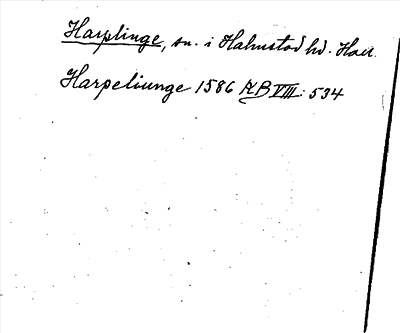 Harplinge, sn. i Halmstad hd. Hall.
Harpeliunge 1586 KB VIII: 534